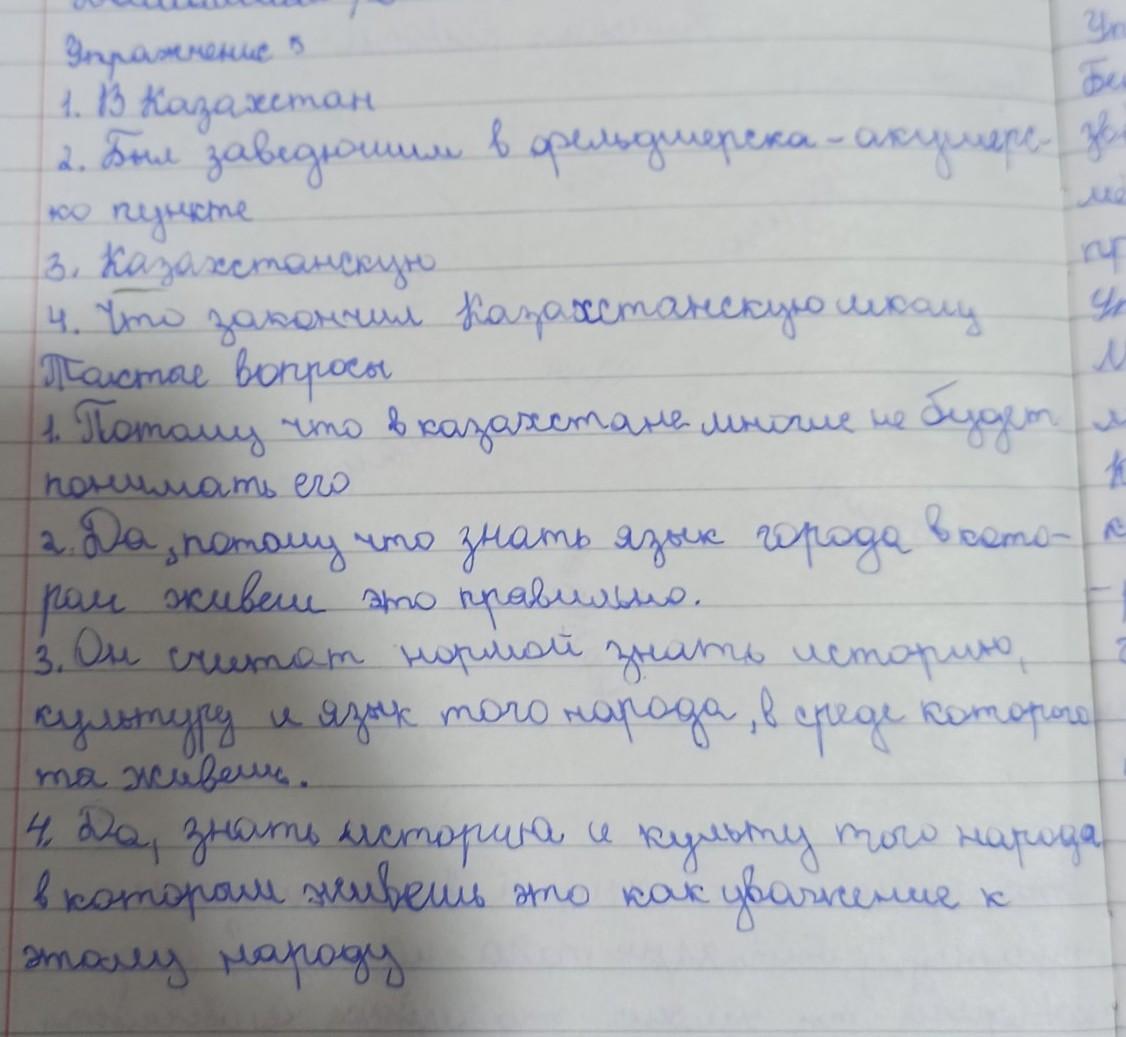 Упражнение 5
1. В Казахстан
2. Был заведюшим в фельдшерска-акушерс-
ко пункте
3. Казахстанскую
4. Что закончил Казахстанскую школу
Толстые вопросы
1. Потому что в казахстане многие не будет
понимать его
2. Да, потому что знать язык города в кото-
ром живеш это правильно.
3. Он считат нормой знать историю,
культуру и язык того народа, в среде которого
та живешь.
4. Да, знать история и культу того народа
в котором живешь это как уважение к
этому народу
Уп